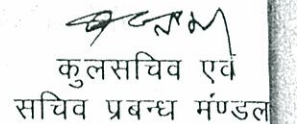 कुलसचिव एवं
सचिव प्रबन्ध मंण्डल